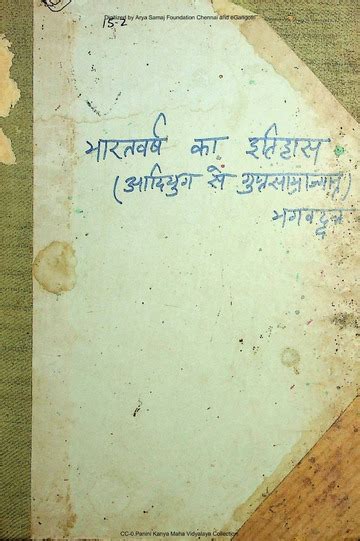 Digitized by Arya Samaj Foundation Chennai and eGangotri
15-2
भारतवर्ष का इतिहास
(आदियुग से गुप्तसाम्राज्यान्त)
भगवद्दत्त
CC-0.Panini Kanya Maha Vidyalaya Collection.